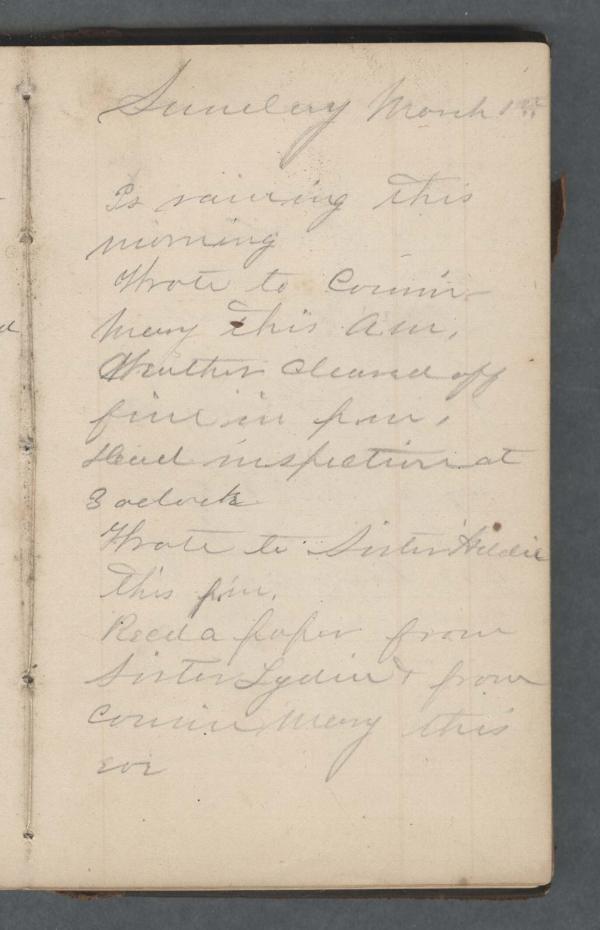 Sunday March 1st
Is raining this
morning
Wrote to Cousin
Mary this am.
Weather cleared off
fine in p.m.
Had inspection at
3 oclock
Wrote to Sister
this p.m.
Recd a paper from
Sister Lydia & from
Cousin Mary this
eve